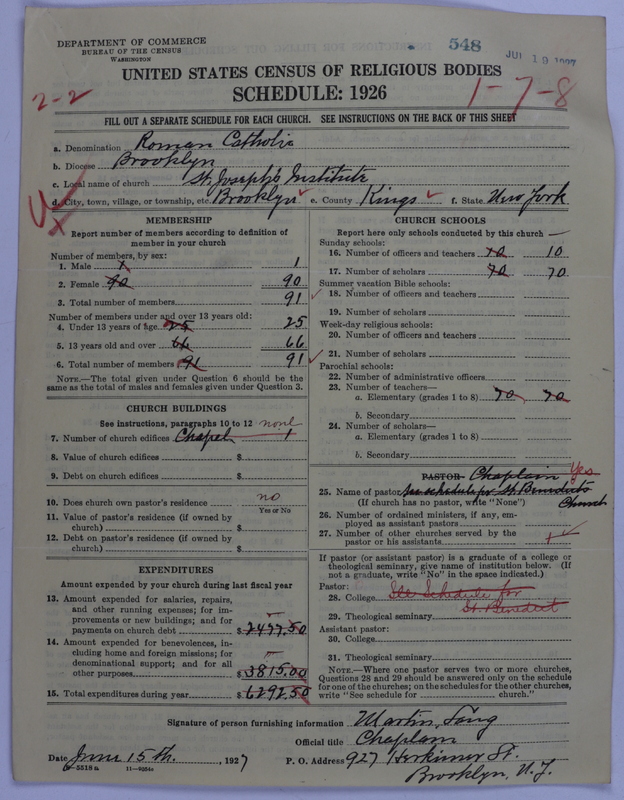 DEPARTMENT OF COMMERCE
BUREAU OF THE CENSUS
WASHINGTON
548
JUL 19 1927
UNITED STATES CENSUS OF RELIGIOUS BODIES
SCHEDULE: 1926
2-2
1-7-8
FILL OUT A SEPARATE SCHEDULE FOR EACH CHURCH. SEE INSTRUCTIONS ON THE BACK OF THIS SHEET
a. Denomination Roman Catholic
b. Diocese Brooklyn
c. Local name of church St. Joseph's Institute
d. City, town, village, or township, etc. Brooklyn e. County Kings f. State New York
MEMBERSHIP
Report number of members according to definition of member in your church
Number of members, by sex:
1. Male 1
2. Female 90 90
3. Total number of members 91
Number of members under and over 13 years old:
4. Under 13 years of age 25 25
5. 13 years old and over 66 66
6. Total number of members 91 91
NOTE.—The total given under Question 6 should be the
same as the total of males and females given under Question 3.
CHURCH BUILDINGS
See instructions, paragraphs 10 to 12 none
7. Number of church edifices Chapel 1
8. Value of church edifices $
9. Debt on church edifices $
10. Does church own pastor's residence no
Yes or No
11. Value of pastor's residence (if owned by
church) $
12. Debt on pastor's residence (if owned by
church) $
EXPENDITURES
Amount expended by your church during last fiscal year
13. Amount expended for salaries, repairs,
and other running expenses; for im-
provements or new buildings; and for
payments on church debt $2477.50
14. Amount expended for benevolences, in-
cluding home and foreign missions; for
denominational support; and for all
other purposes $3815.00
15. Total expenditures during year $6292.50
CHURCH SCHOOLS
Report here only schools conducted by this church
Sunday schools:
16. Number of officers and teachers 10 10
17. Number of scholars 70 70
Summer vacation Bible schools:
18. Number of officers and teachers
19. Number of scholars
Week-day religious schools:
20. Number of officers and teachers
21. Number of scholars
Parochial schools:
22. Number of administrative officers
23. Number of teachers—
a. Elementary (grades 1 to 8) 70 70
b. Secondary
24. Number of scholars—
a. Elementary (grades 1 to 8)
b. Secondary
PASTOR Chaplain Yes
25. Name of pastor See schedule for St. Benedict's
(If church has no pastor, write "None") Church
26. Number of ordained ministers, if any, em-
ployed as assistant pastors
27. Number of other churches served by the
pastor or his assistants 1
If pastor (or assistant pastor) is a graduate of a college or
theological seminary, give name of institution below. (If
not a graduate, write "No" in the space indicated.)
Pastor:
28. College See Schedule for
St. Benedict
29. Theological seminary
Assistant pastor:
30. College
31. Theological seminary
NOTE.—Where one pastor serves two or more churches,
Questions 28 and 29 should be answered only on the schedule
for one of the churches; on the schedules for the other churches,
write "See schedule for church."
Signature of person furnishing information Martin Lang
Official title Chaplain
Date June 15th, 1927 P. O. Address 927 Herkimer St.
Brooklyn, N.Y.